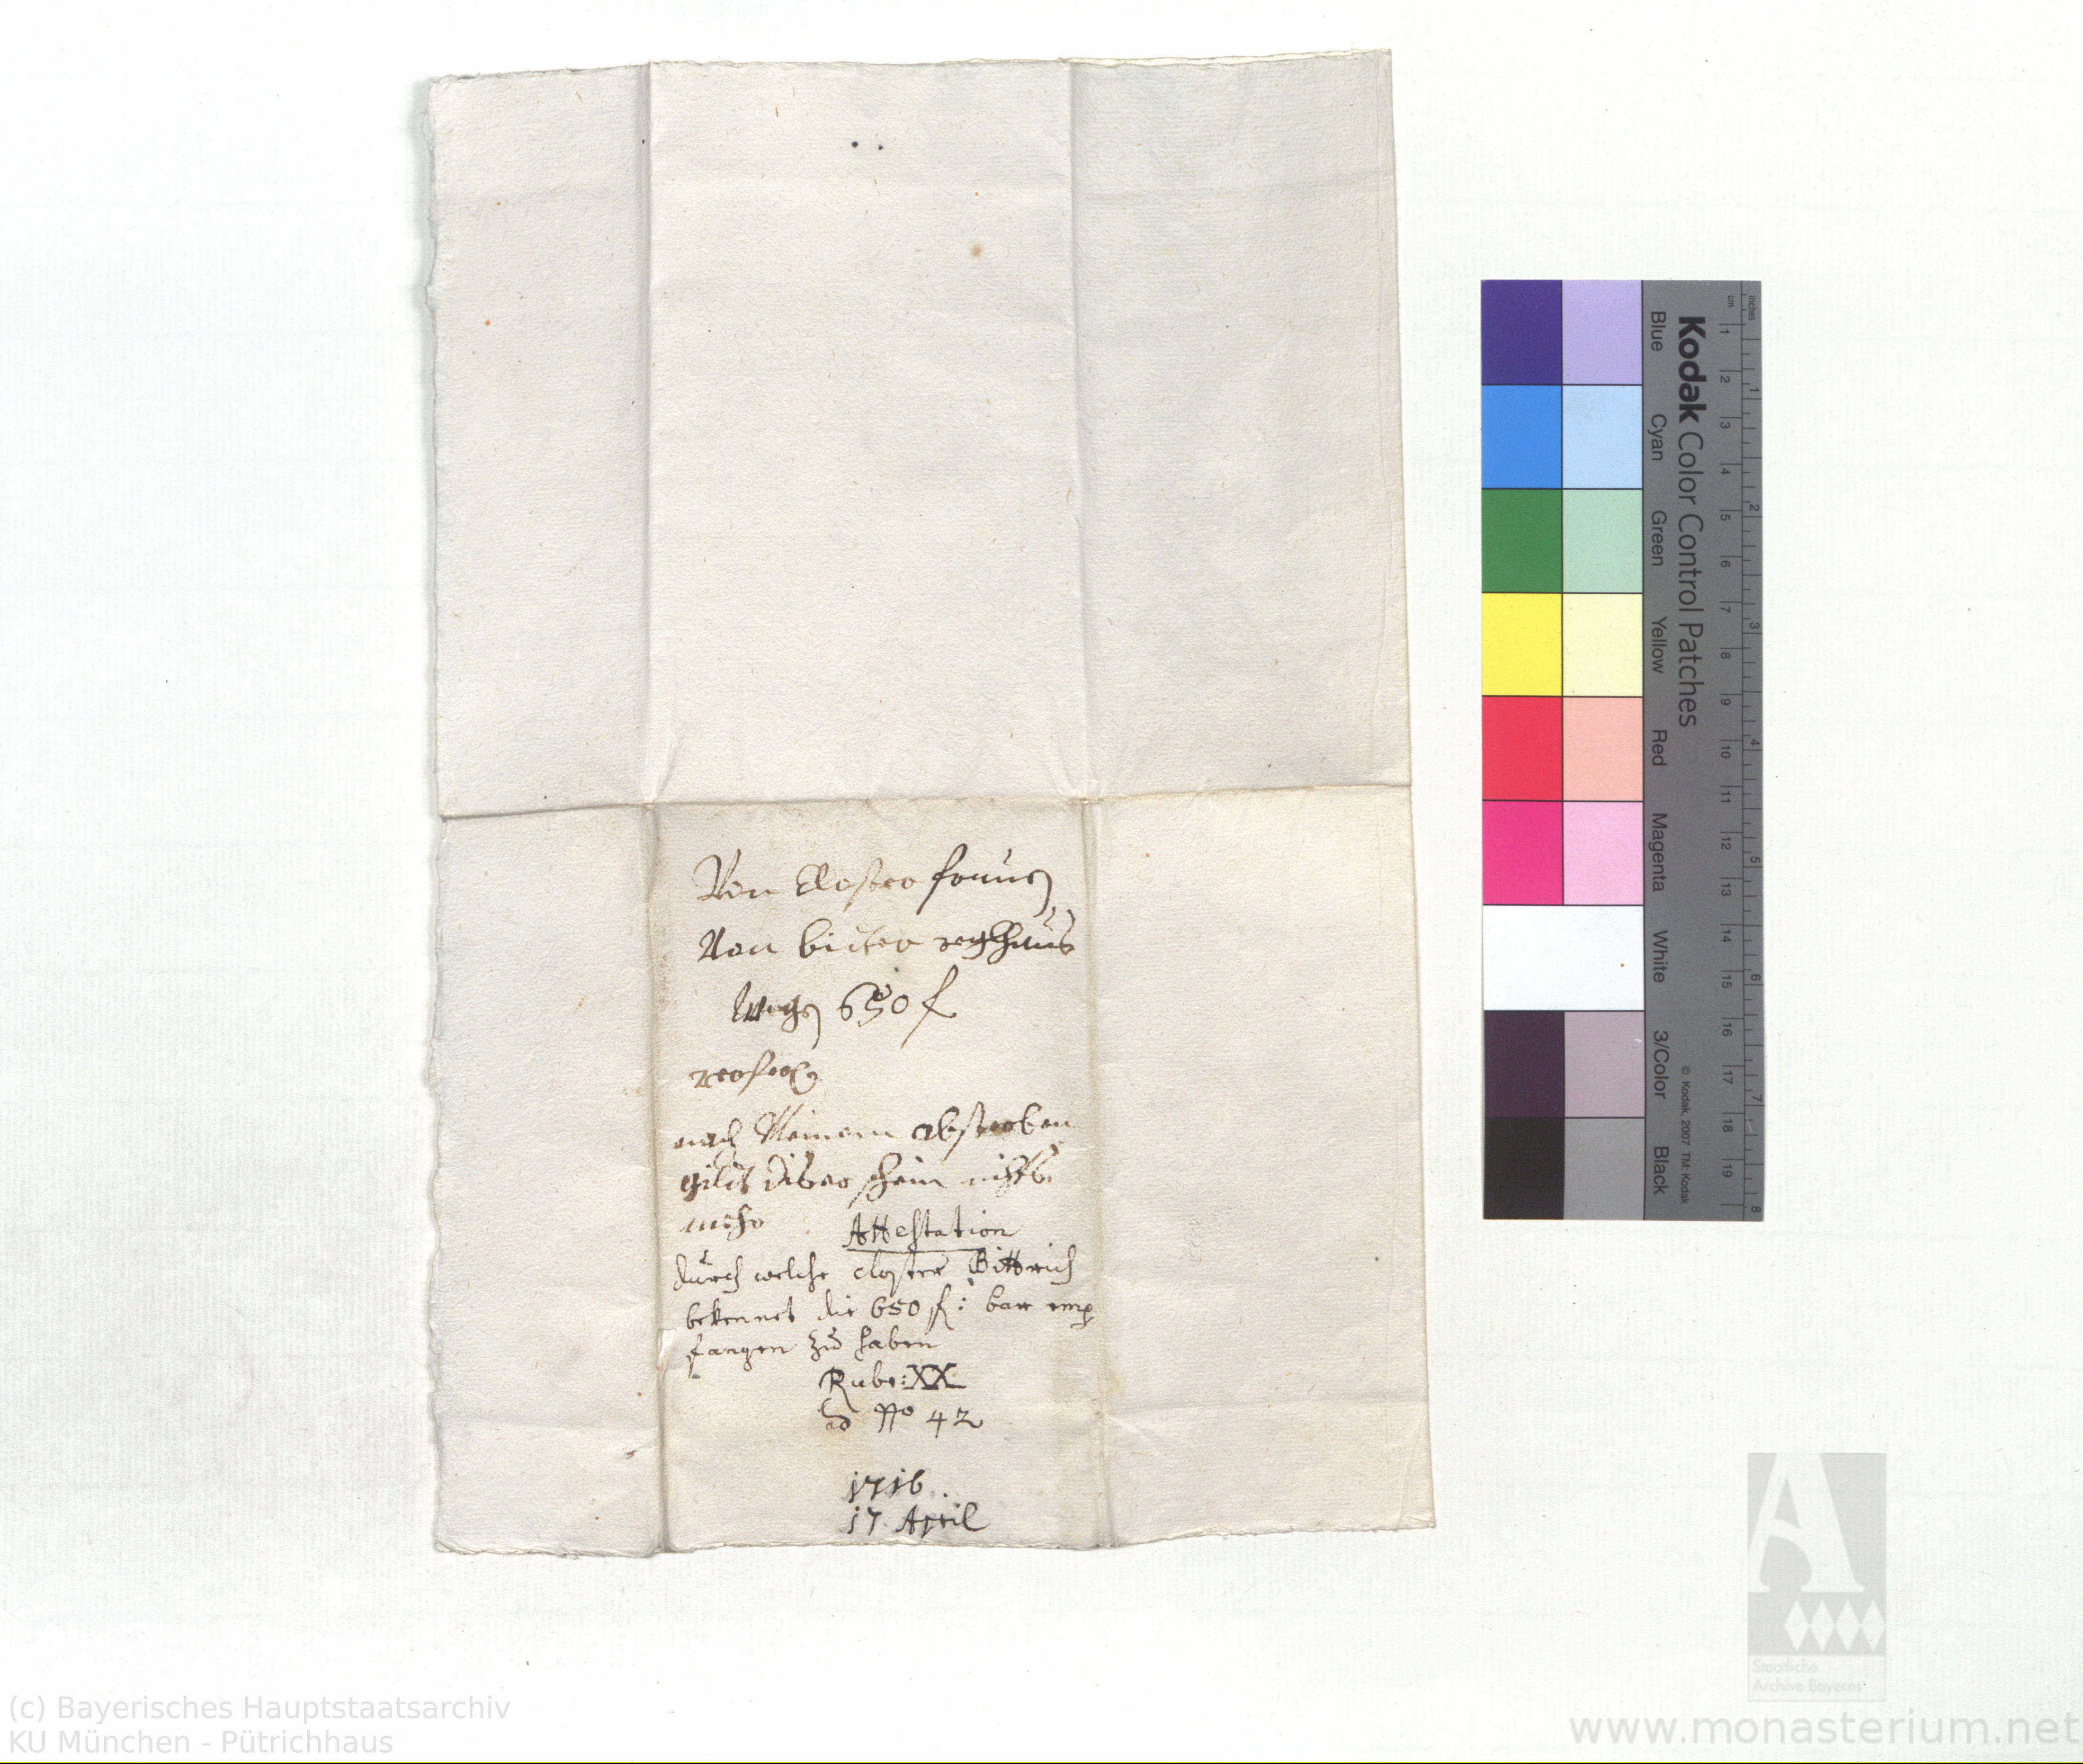 Von Closter frauen
Von bitter reghaus
wegen 650 f
nach Meinem absterben
gildt diser schein nichts
mehr
Attestation
durch welche closter Bittrich
bekennet die 650 f: bar emp
fangen zu haben
Rubr: XX
ad No 42
1716.
17 April
Kodak Color Control Patches
Blue Cyan Green Yellow Red Magenta White 3/Color Black
© Kodak, 2007 TM: Kodak
inches 1 2 3 4 5 6 7 8
cm 1 2 3 4 5 6 7 8 9 10 11 12 13 14 15 16 17 18 19
Staatliche
Archive Bayerns
(c) Bayerisches Hauptstaatsarchiv
KU München - Pütrichhaus
www.monasterium.net